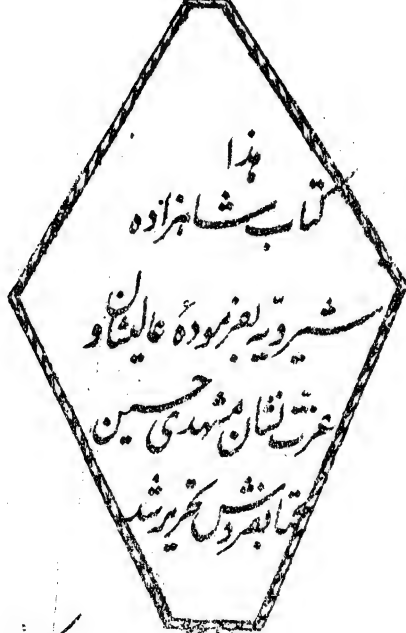 هذا
کتاب شاهزاده
شیرویّه بفرمودهٔ عالیشان و
عزت نشان مشهدی حسین
کتابفروش تحریر شد